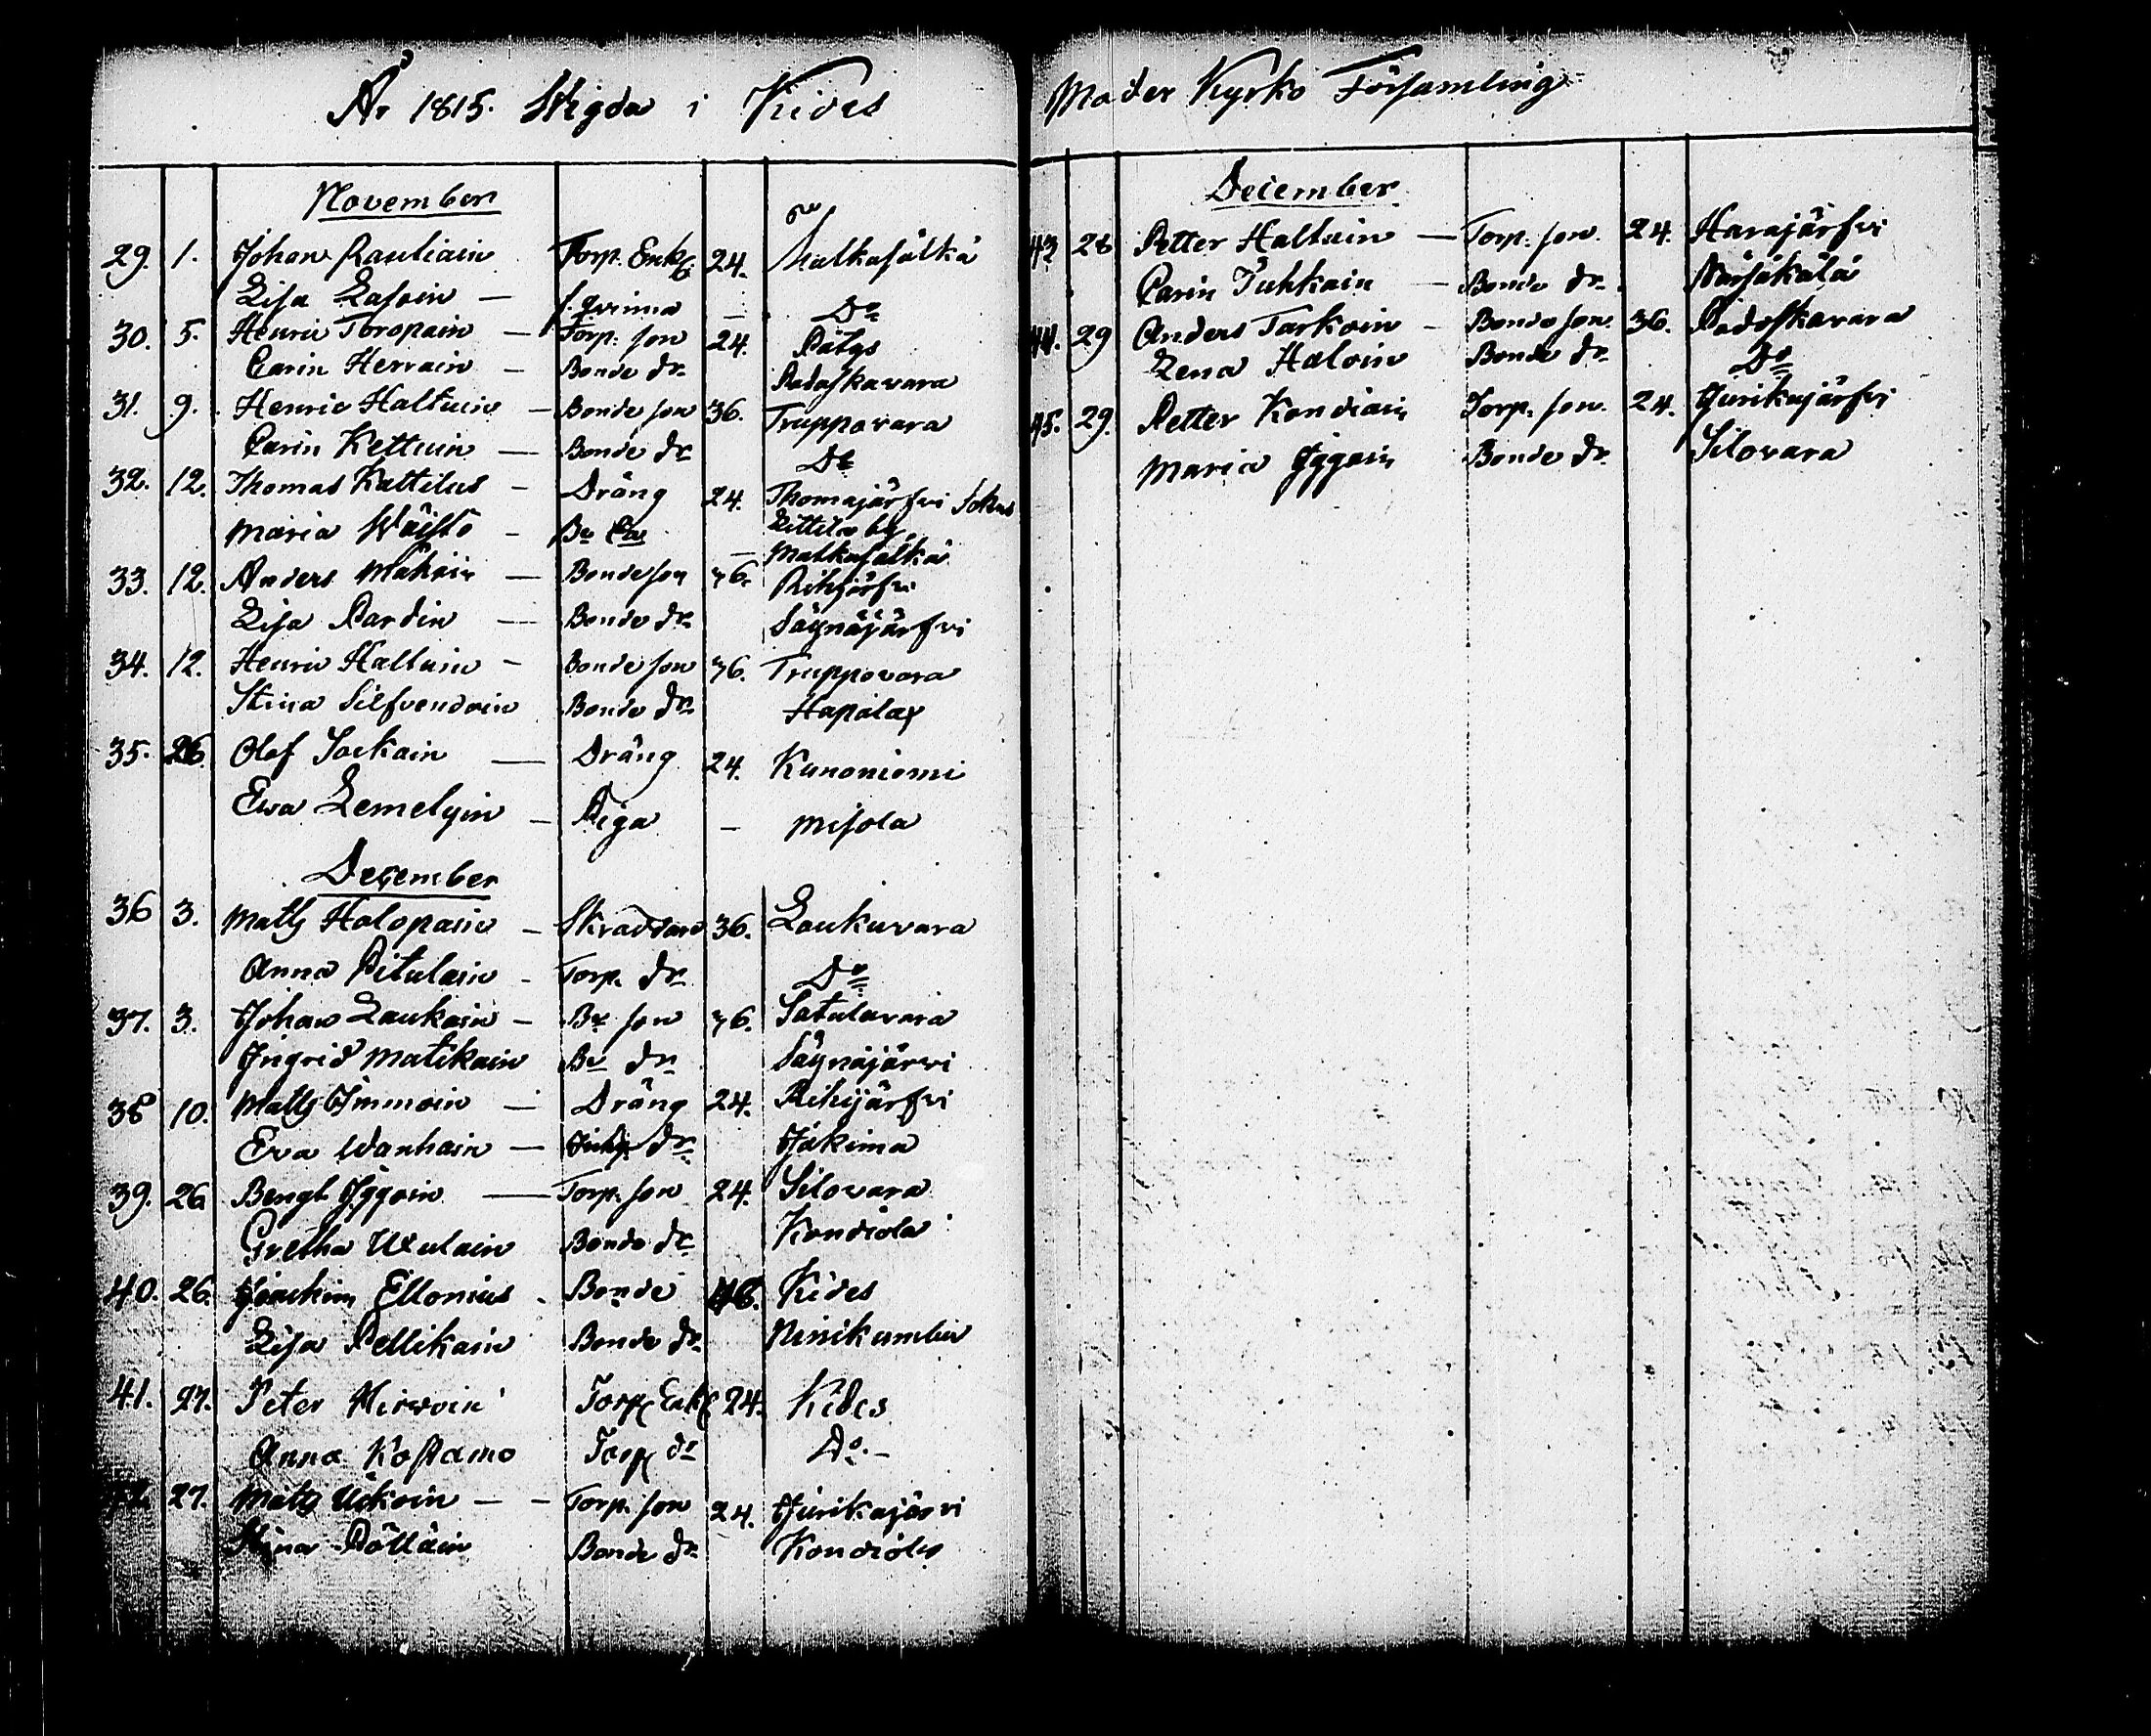 År 1815. Wigda i Kides
November
29. 1. Johan Rauliain Torp. Enkl. 24. Malkasälkä
Lisa Lasoin — s. qvinna — Do
30. 5. Henric Toropain — Torp. son 24. Pätys
Carin Herrain — Bonde dr. Podoskavara
31. 9. Henric Haltuin — Bonde son 36. Truppovara
Carin Kettuin — Bonde dr Do
32. 12. Thomas Kattilus — Dräng 24. Thomajärfvi Sokn
Kittilä by
Maria Wäistö — Be — Malkasälkä
33. 12. Anders Mähöin — Bonde son 36. Rihijärfvi
Lisa Pardin — Bonde dr. Säynäjärfvi
34. 12. Henric Haltuin — Bonde son 36. Truppovara
Stina Silfvendoin Bonde dr. Hapalax
35. 26. Olof Sockain — Dräng 24. Kunoniemi
Ewa Lemelyin — Piga — Misola
December
36 3. Matts Holopain — Skraddare 36. Laukuvara
Anna Pitulain — Torp. dr. Do
37. 3. Johan Laukain — Be son 36. Satulavara
Ingrid Matikain Be dr. Säynäjärvi
38 10. Matts Immoin — Dräng 24. Rihijärfvi
Eva Wanhain — Inhy. dr. Jakima
39. 26 Bengt Iggoin — Torp. son 24. Silovara
Gretha Uxulain Bonde dr. Kondiola
40. 26. Joachim Ellonius. Bonde 48. Kides
Lisa Pellikain Bonde dr. Ninikumbu
41. 27. Peter Hirvoin Torp Enkl 24. Kides
Anna Kostamo Torp dr Do. —
42. 27. Matts Uskoin — — Torp. son 24. Jurikajärvi
Stina Pölläin Bonde dr. Kondiola
Moder Kyrko Församling
December
43 28 Petter Haltuin — Torp. son. 24. Harajärfvi
Carin Tuhkain — Bonde dr. Närsäkälä
44. 29 Anders Tarkoin — Bonde son. 36. Podoskavara
Lena Haloin Bonde dr. Do
45. 29. Petter Kondiain Torp. son. 24. Jurikajärfvi
Maria Iggoin Bonde dr. Silovara